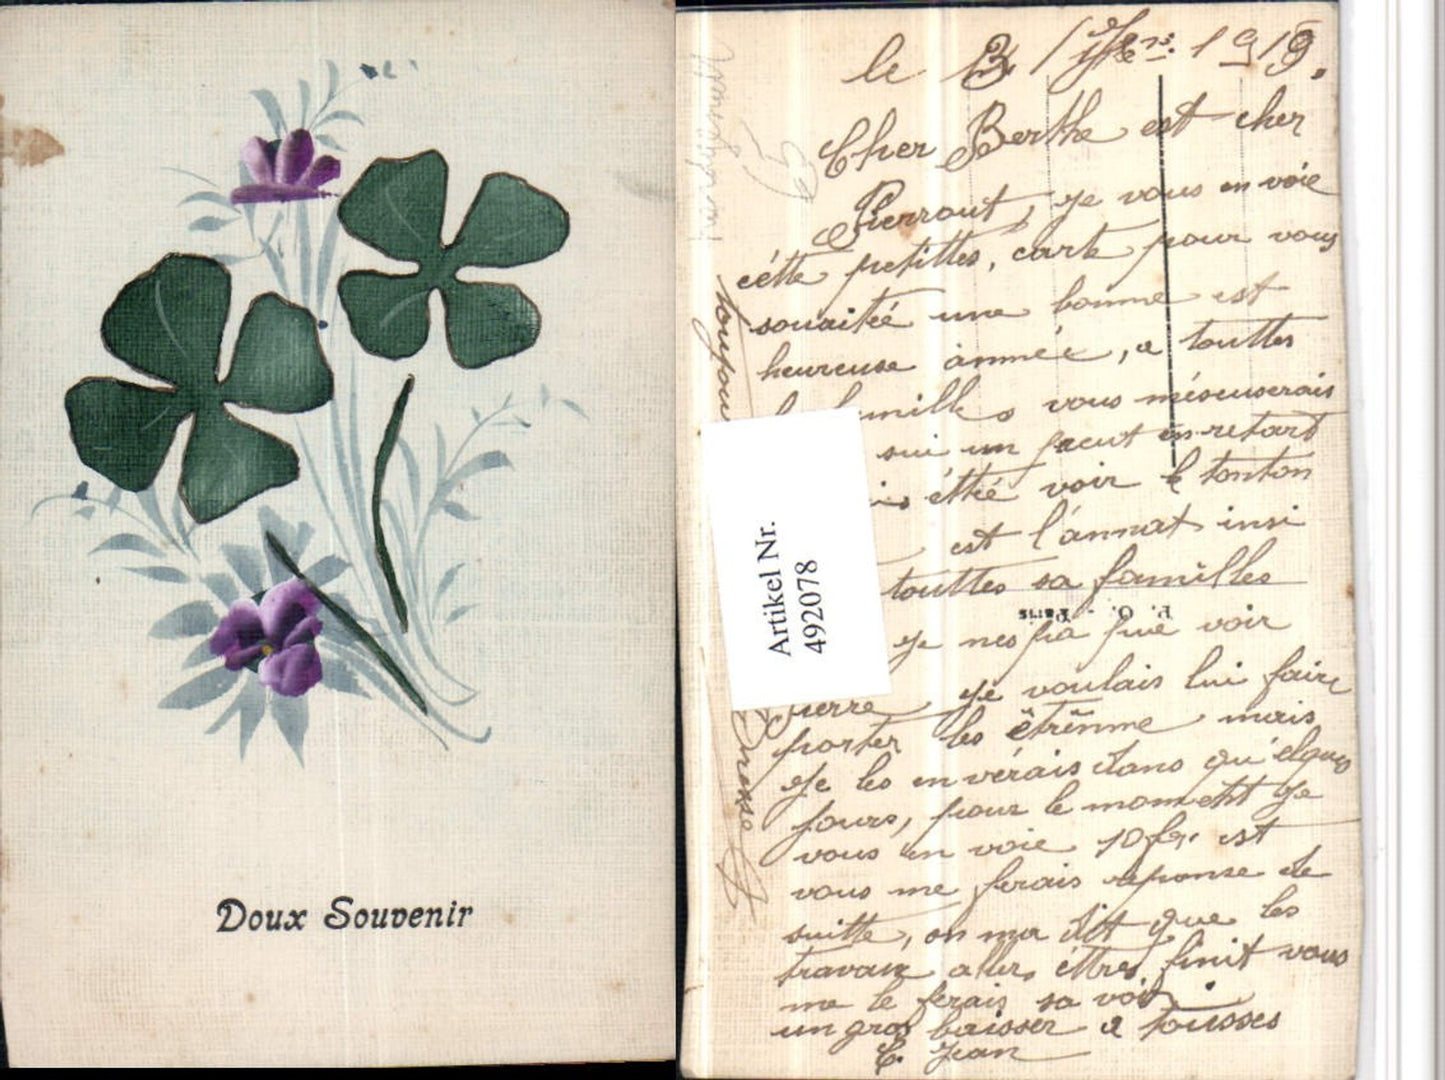 Doux Souvenir
le 3 1919.
Cher Berthe est cher
Pierrout, je vous en voie
cétte petittes, carte pour vous
souaitée une bonne est
heureuse année, a touttes
vous méscuserais
sui un en retart
éttié voir le tonton
est l'annat insi
touttes sa familles
je voir
Pierre je voulais lui faire
porter les ëtrënne mais
je les en vérais dans qu'elques
jours, pour le moment je
vous en voie 10 fr. est
vous me ferais reponse de
suitte, on ma dit que les
travaux aller éttres finit vous
me le ferais sa voir.
un gros baisser a tousses
E. Jean
Artikel Nr.
492078
F. O. - Paris